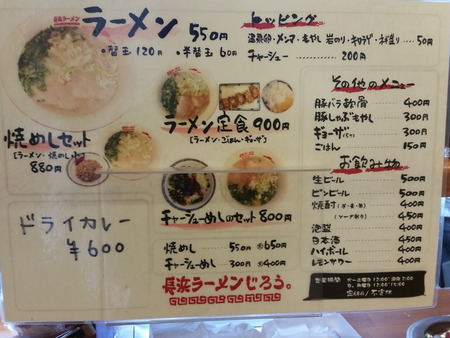 長浜ラーメン
ラーメン 550円
・替玉 120円 ・半替玉 60円
トッピング
温泉卵・メンマ・もやし・岩のり・キクラゲ・ネギ盛り・・・50円
チャーシュー・・・200円
ラーメン定食 900円
[ラーメン・ごはん・ギョーザ]
焼めしセット
[ラーメン・焼めし(小)]
880円
チャーシューめしのセット 800円
焼めし・・・550円 大650円
チャーシューめし・・・300円 大400円
ドライカレー
¥600
長浜ラーメンじろう。
その他のメニュー
豚バラ軟骨 400円
豚しゃぶもやし 300円
ギョーザ 300円
ごはん 150円
お飲み物
生ビール 500円
ビンビール 500円
焼酎 400円
450円
泡盛 400円
日本酒 450円
ハイボール 400円
レモンサワー 400円
営業時間